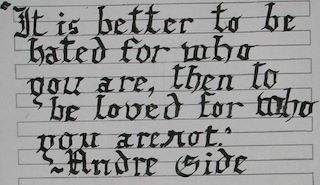 "It is better to be
hated for who
you are, then to
be loved for who
you are not."
~Andre Gide